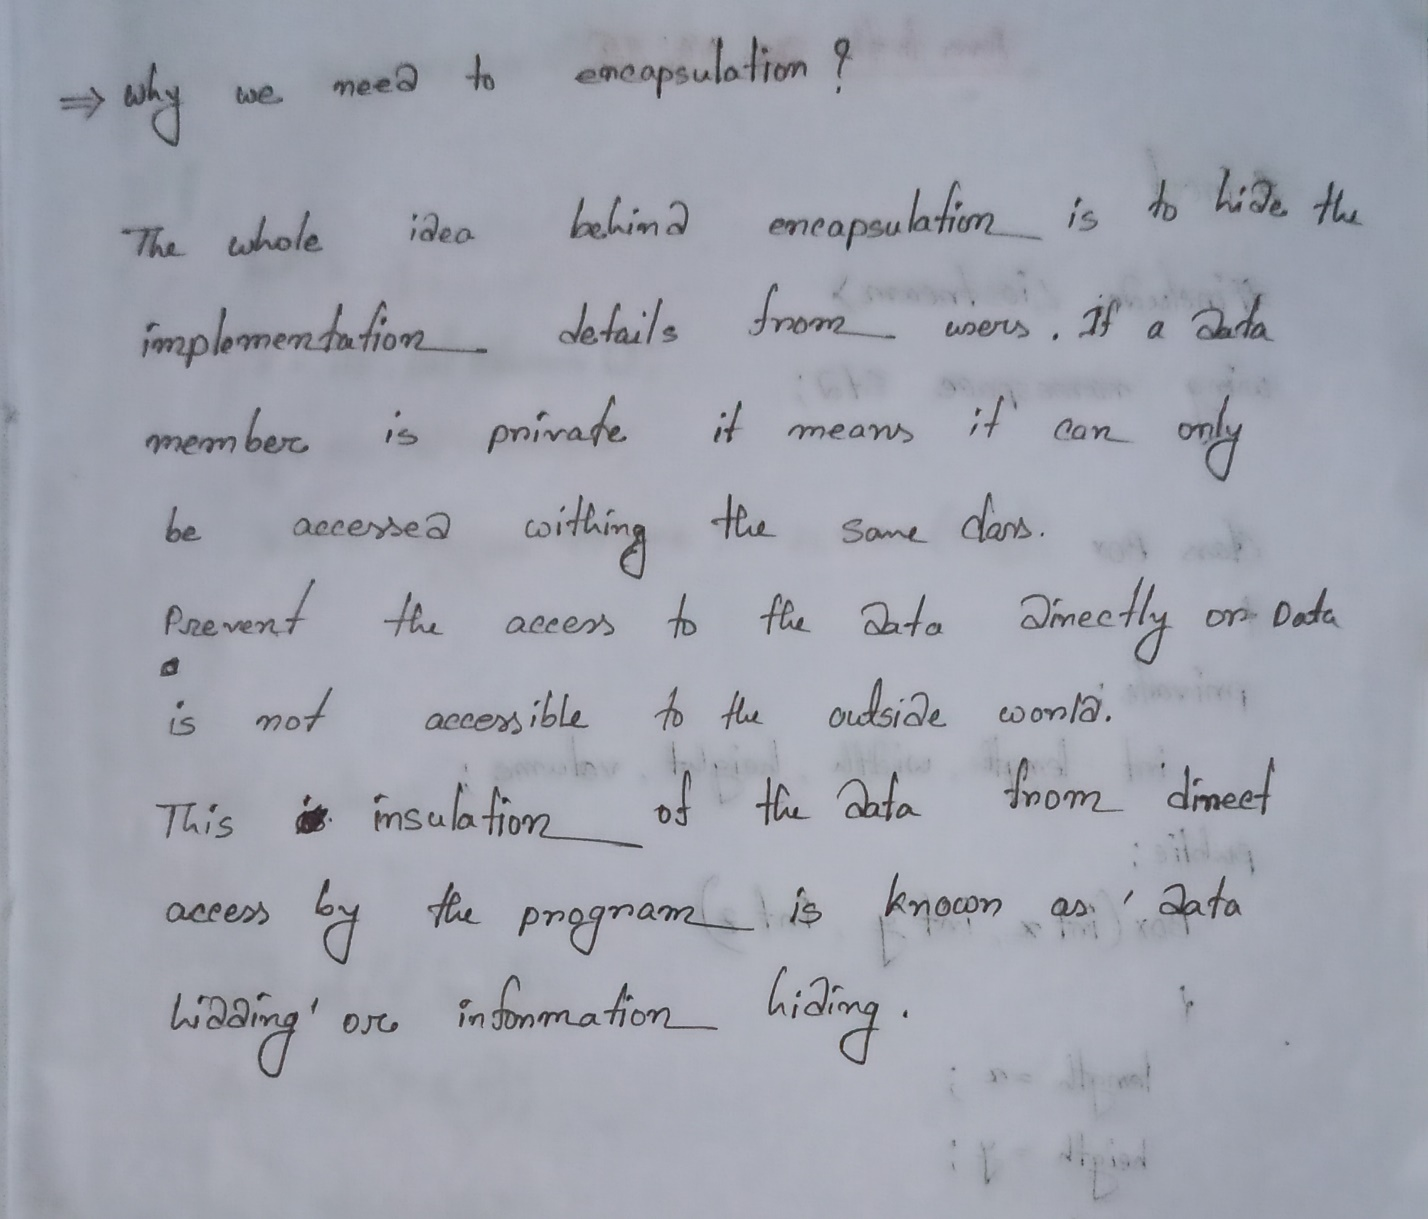 ⇒ why we need to encapsulation ?
The whole idea behind encapsulation is to hide the
implementation details from users. If a data
member is private it means it can only
be accessed withing the same class.
Prevent the access to the data directly or Data
is not accessible to the outside world.
This insulation of the data from direct
access by the program is known as 'data
hidding' or information hiding.